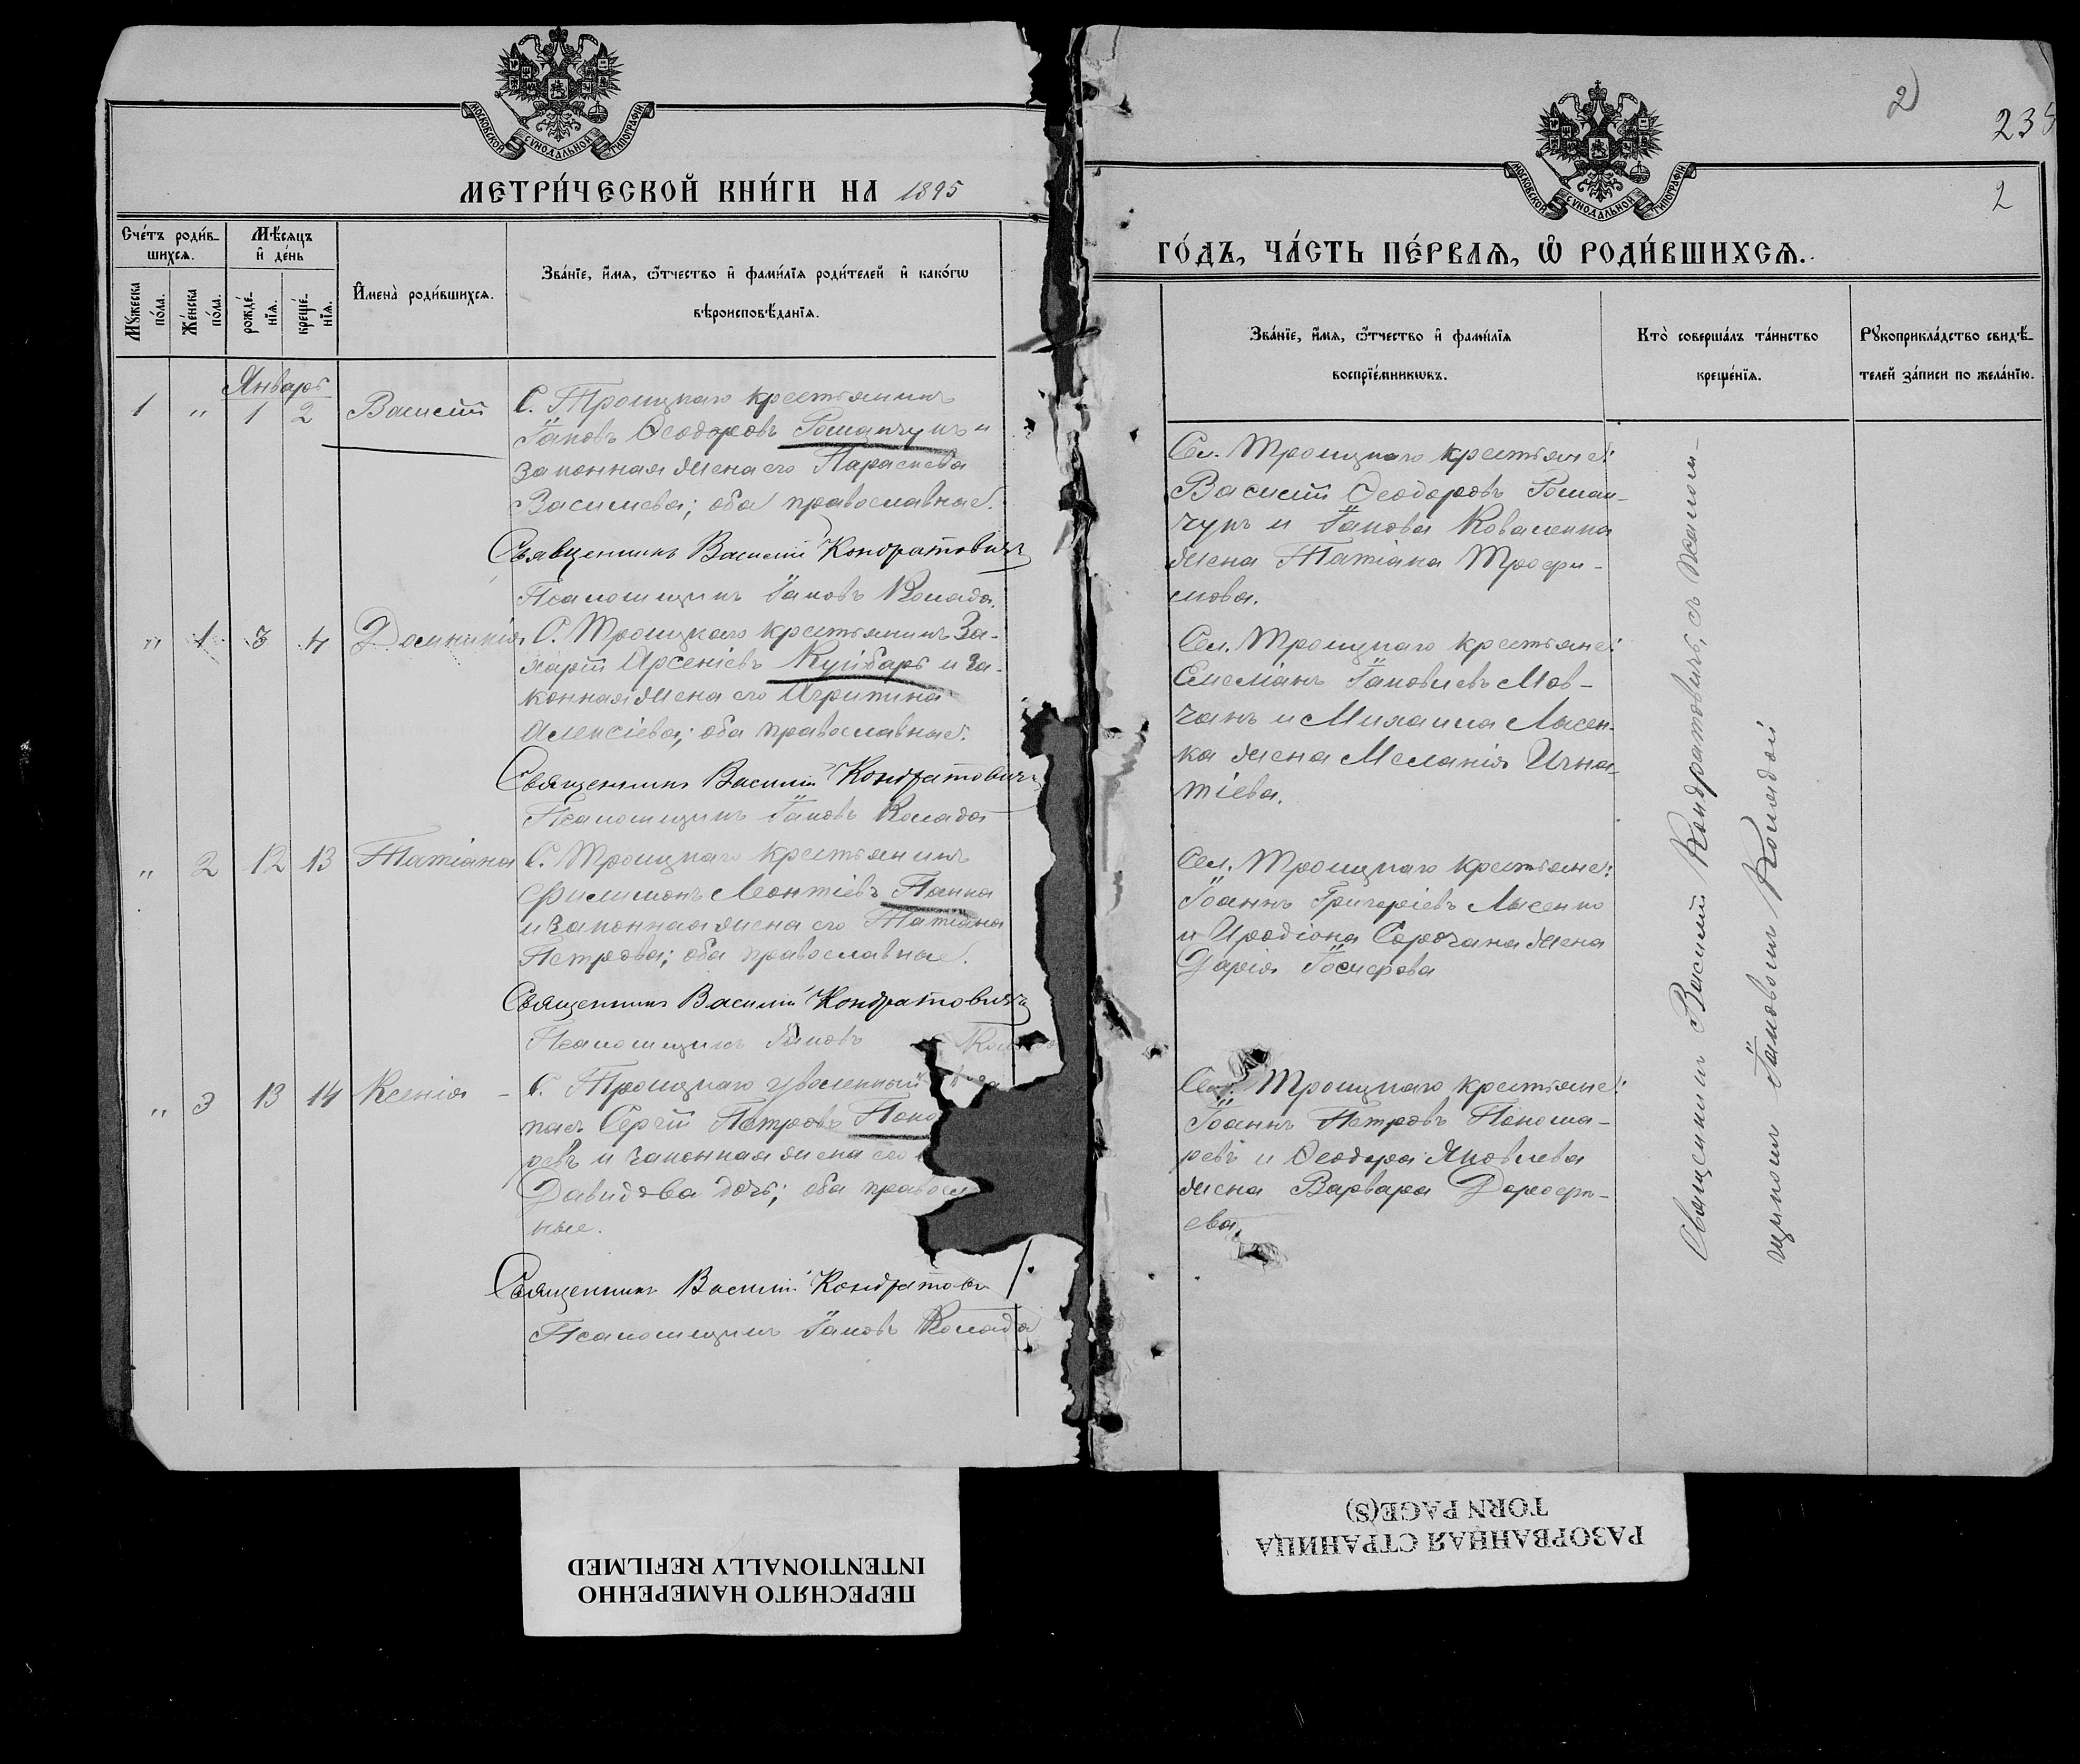 МОСКОВСКОЙ СѴНОДАЛЬНОЙ ТИПОГРАФІИ
МЕТРИ́ЧЕСКОЙ КНИ́ГИ НА 1895
Сче́тъ роди́в-
шихсѧ.
Мѣ́сѧцъ
и҆ де́нь
Мꙋ́жеска
по́ла.
Же́нска
по́ла.
рожде́-
нїѧ.
креще́-
нїѧ.
И҆мена̀ роди́вшихсѧ.
Зва́нїе, и҆́мѧ, ѻ҆́тчество и҆ фами́лїѧ роди́телей и҆ како́гѡ
вѣроисповѣ́данїѧ.
Январь
1 " 1 2 Василій
С. Троицкаго крестьянинъ
Іаковъ Ѳеодоровъ Романчукъ и
законная жена его Параскева
Василиева; оба православные.
Священникъ Василій Кондратовичъ
Псаломщикъ Іаковъ Коляда.
" 1 3 4 Домникія
С. Троицкаго крестьянинъ За-
харій Арсеніевъ Куйбарь и за-
конная жена его Агрипина
Алексіева; оба православные.
Священникъ Василій Кондратовичъ
Псаломщикъ Іаковъ Коляда
" 2 12 13 Татіана
С. Троицкаго крестьянинъ
Филимонъ Леонтіевъ Папка
и законная жена его Татіана
Петрова; оба православные.
Священникъ Василій Кондратовичъ
Псаломщикъ Іаковъ
" 3 13 14 Ксенія
С. Троицкаго уволенный въ за-
пасъ Сергій Петровъ Поно
ревъ и законная жена его
Давидова дочь; оба правосл
ные.
Священникъ Василій Кондратови
Псаломщикъ Іаковъ Коляда
2
238
2
МОСКОВСКОЙ СѴНОДАЛЬНОЙ ТИПОГРАФІИ
ГО́ДЪ, ЧА́СТЬ ПЕ́РВАѦ, Ѡ҆ РОДИ́ВШИХСѦ.
Зва́нїе, и҆́мѧ, ѻ҆́тчество и҆ фами́лїѧ
воспрїе́мникѡвъ.
Кто̀ соверша́лъ та́инство
креще́нїѧ.
Рꙋкоприкла́дство свидѣ́-
телей за́писи по жела́нїю.
Сел. Троицкаго крестьяне:
Василій Ѳеодоровъ Роман-
чукъ и Іакова Коваленка
жена Татіана Трофи-
мова.
Сел. Троицкаго крестьяне:
Емеліанъ Іаковлевъ Мов-
чанъ и Михаила Лысен-
ка жена Меланія Игна-
тіева.
Сел. Троицкаго крестьяне:
Іоаннъ Григоріевъ Лысенко
и Иродіона Сорочана жена
Дарія Іосифова
Сел. Троицкаго крестьяне:
Іоаннъ Петровъ Понома-
ревъ и Ѳеодора Яковлева
жена Варвара Дорофи-
ева.
Священникъ Василій Кондратовичъ, съ псалом-
щикомъ Іаковомъ Колядой
ПЕРЕСНЯТО НАМЕРЕННО
INTENTIONALLY REFILMED
РАЗОРВАННАЯ СТРАНИЦА
TORN PAGE(S)